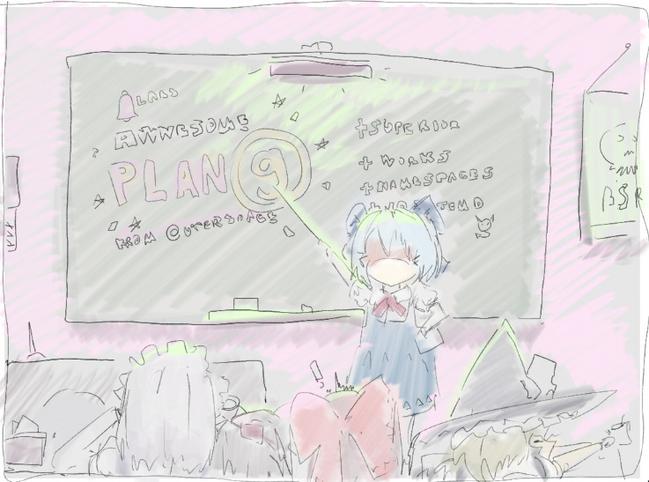 LABS
AWWESOME
PLAN 9
FROM OUTERSPACE
+SUPERIOR
+WORKS
+NAMESPACES
BSR